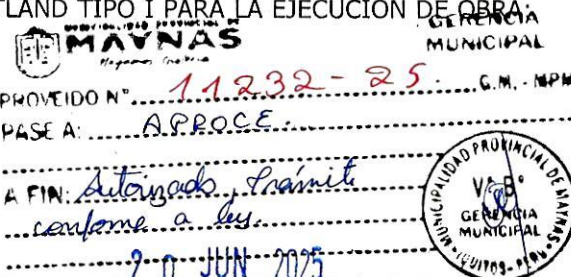 TLAND TIPO I PARA LA EJECUCION DE OBRA:
MUNICIPALIDAD PROVINCIAL DE
MAYNAS
GERENCIA
MUNICIPAL
PROVEIDO N° 11232-25. G.M.-MPM
PASE A: APROCE.
A FIN: Autorizado, Trámite
conforme a ley.
20 JUN 2025
MUNICIPALIDAD PROVINCIAL DE MAYNAS
V° B°
GERENCIA
MUNICIPAL
IQUITOS - PERU